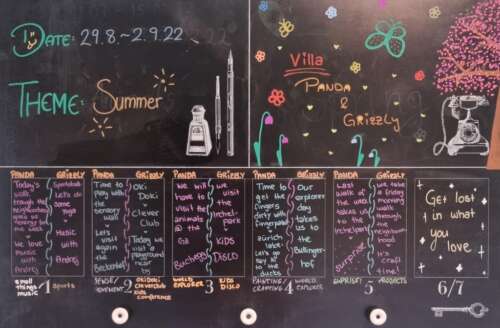 DATE: 29.8.~2.9.22
THEME: Summer
Villa
PANDA
&
GRizzly
PANDA GRizzly
Today's
walk
through the
neighborhood
gives us
energy for
the week
We love
music
with
Andrej
Sportsbab
Let's do
some
Yoga
Music
with
Andrej
PANDA GRizzly
Time to
play with
the
sensory
wall
Let's
visit
again
the
OKi
DoKi
Clever
Club
Today we
visit a
playground
near
by
PANDA GRizzly
We will
have to
visit the
animals
@ the
GZ
Buchegg
We
visit
the
KiDS
DiSCO
PANDA GRizzly
Time to
get the
fingers
dirty with
fingerpaint
Zürich
later
Let's go
say hi
to the
ducks
Our
explorer
day
takes
us to
the
Bullinger-
hof
PANDA GRizzly
Last
walk of
the week
takes us
to the
surprise
We take
a friday
morning
walk
through
the
neighbor-
hood
It's
craft
time!
Get lost
in what
you
love.
small
things
music
1
Sports
2
OKiDOKi
Cleverclub
Kids
conference
WORLD
EXPLORER
3
KiDS
DiSCO
PAiNTiNG
4
WORLD
EXPLORER
SURPRISE!
5
PROJECTS
6/7